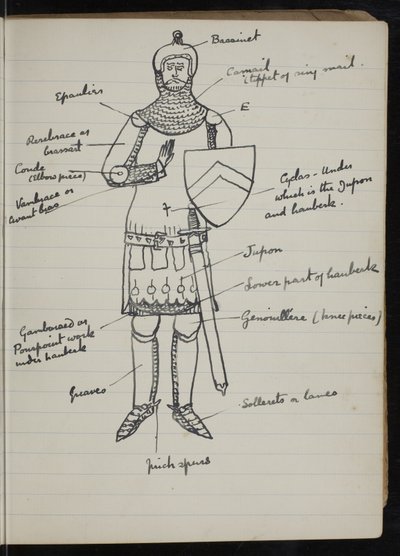 Bassinet
Camail
(tippet of ring mail.
Epauliers
E
Rerebrace or
brassart
Coude
(Elbow piece)
Vambrace or
avant bras
Cyclas - Under
which is the Jupon
and hauberk.
Jupon
Lower part of hauberk
Genouillère (knee pieces)
Gamboised or
Pourpoint work
under hauberk
Greaves
Sollerets or lames
Prick spurs